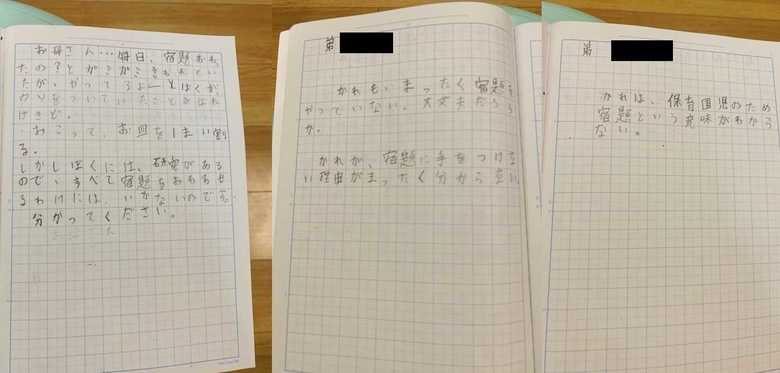 お母さん…毎日、宿題おわ
たの？
たが、やってるよーとぼくが
をついていたことをばれ
おこって、お皿をしまい割
る。
しかしぼくには、研究がある
ので、すべて宿題をおわらせ
るわけには、いかないのです。
分かってください。
弟
かれもいまったく宿題を
やっていない。大丈夫だろう
か。
かれが、宿題に手をつけな
い理由がまったく分からない
弟
かれは、保育園児のため
宿題という意味がわから
ない。